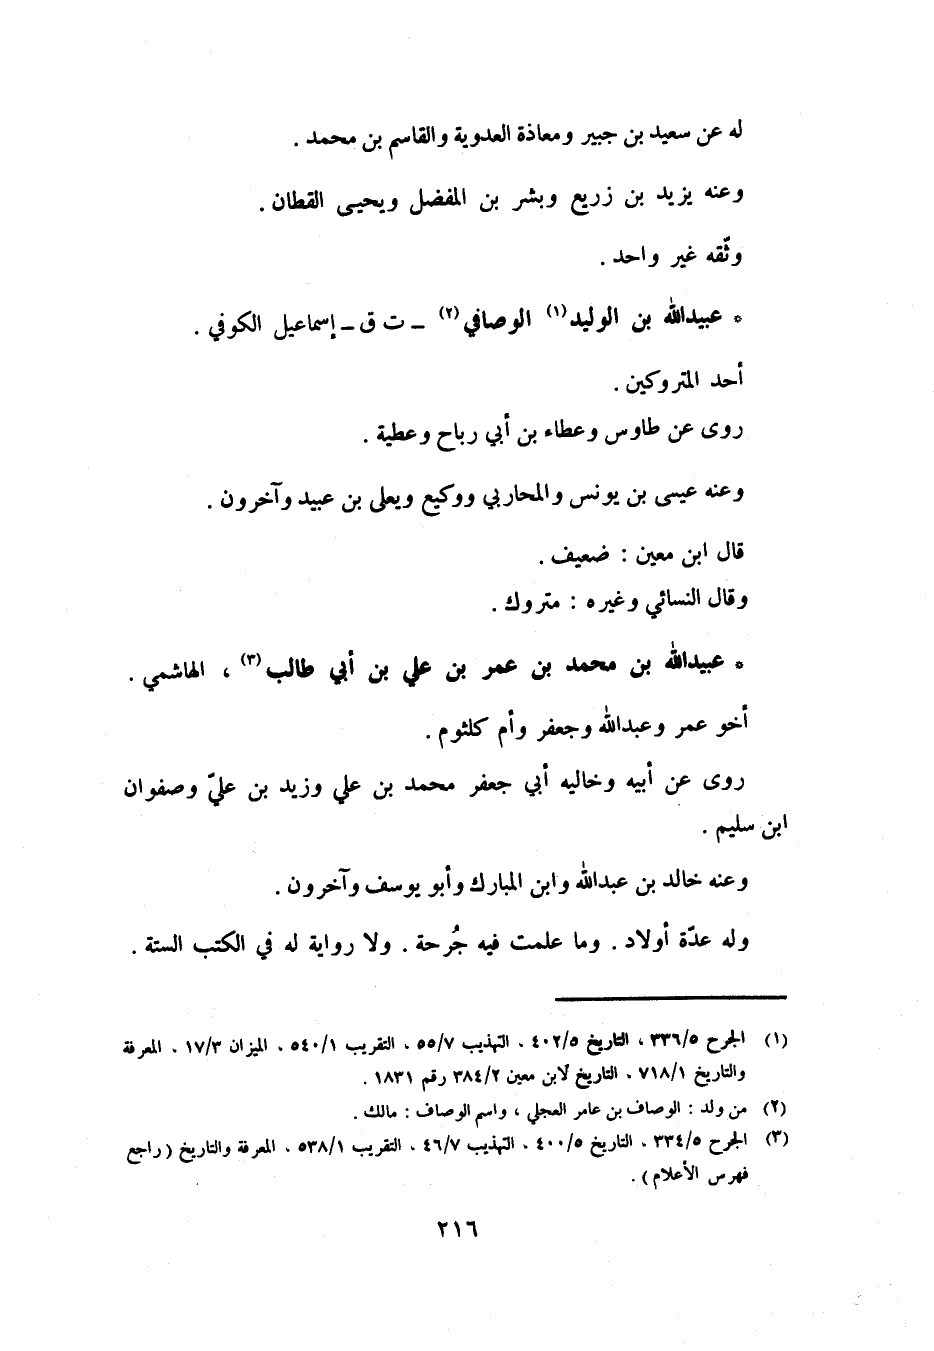 له عن سعيد بن جبير ومعاذة العدوية والقاسم بن محمد .
وعنه يزيد بن زريع وبشر بن المفضل ويحيى القطان .
وثّقه غير واحد .
* عبيدالله بن الوليد(١) الوصافي(٢) ــ ت ق ــ إسماعيل الكوفي .
أحد المتروكين .
روى عن طاوس وعطاء بن أبي رباح وعطية .
وعنه عيسى بن يونس والمحاربي ووكيع ويعلى بن عبيد وآخرون .
قال ابن معين : ضعيف .
وقال النسائي وغيره : متروك .
* عبيدالله بن محمد بن عمر بن علي بن أبي طالب(٣) ، الهاشمي .
أخو عمر وعبدالله وجعفر وأم كلثوم .
روى عن أبيه وخاليه أبي جعفر محمد بن علي وزيد بن عليّ وصفوان
ابن سليم .
وعنه خالد بن عبدالله وابن المبارك وأبو يوسف وآخرون .
وله عدّة أولاد . وما علمت فيه جُرحة . ولا رواية له في الكتب الستة .
(١) الجرح ٣٣٦/٥ ، التاريخ ٤٠٢/٥ . التهذيب ٥٥/٧ . التقريب ٥٤٠/١ . الميزان ١٧/٣ . المعرفة
والتاريخ ٧١٨/١ . التاريخ لابن معين ٣٨٤/٢ رقم ١٨٣١ .
(٢) من ولد : الوصاف بن عامر العجلي ، واسم الوصاف : مالك .
(٣) الجرح ٣٣٤/٥ . التاريخ ٤٠٠/٥ . التهذيب ٤٦/٧ . التقريب ٥٣٨/١ . المعرفة والتاريخ ( راجع
فهرس الأعلام ) .
٢١٦